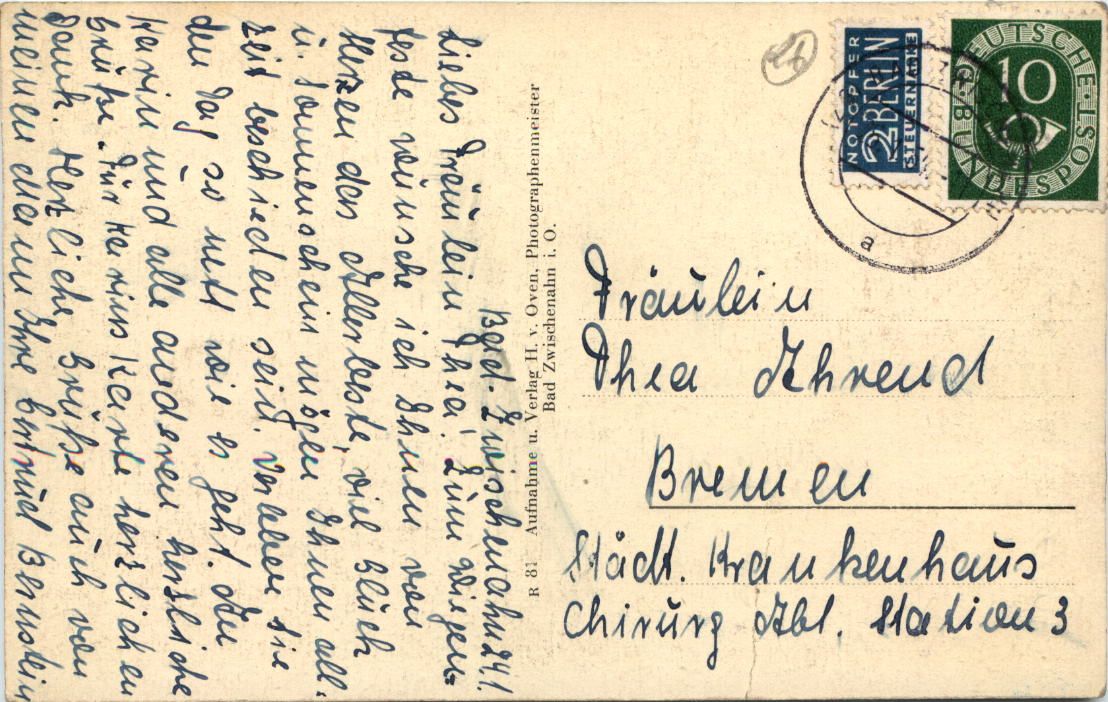 Bad-Zwischenahn 24.1.
Liebes Fräulein Thea! Zum Wiegen-
feste wünsche ich Ihnen von
Herzen das Allerbeste, viel Glück
u. Sonnenschein mögen Ihnen all-
zeit beschieden sein. Verleben Sie
den Tag so nett wie es geht. An
Karin und alle anderen herzliche
Grüße. Für Karins Karte herzlichen
Dank. Herzliche Grüße auch von
meinem Mann Ihre Gertrud Bernstein
R 81 Aufnahme u. Verlag H. v. Oven, Photographenmeister
Bad Zwischenahn i. O.
24
NOTOPFER
2 BERLIN
STEUERMARKE
DEUTSCHE
10
BUNDESPOST
a
Fräulein
Thea Ahrend
Bremen
Städt. Krankenhaus
Chirurg Abt. Station 3